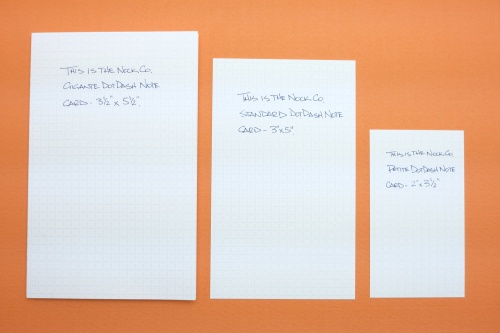 This is the Nock Co.
Gigante DotDash Note
Card - 3½" x 5½".
This is the Nock Co
Standard DotDash Note
Card - 3"x5"
This is the Nock Co
Petite DotDash Note
Card - 2" x 3½"